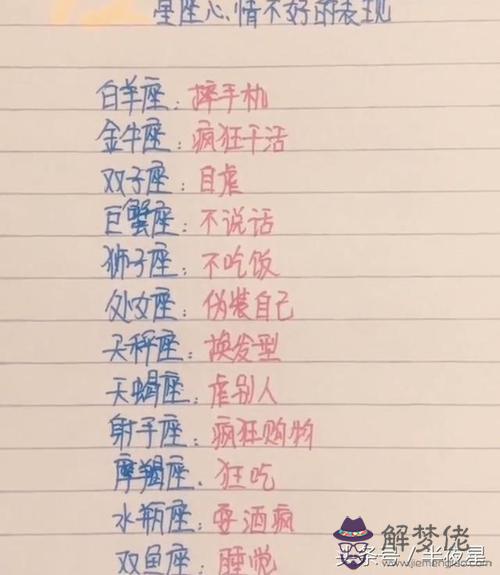 星座心情不好的表现
白羊座：摔手机
金牛座：疯狂干活
双子座：自虐
巨蟹座：不说话
狮子座：不吃饭
处女座：伪装自己
天秤座：换发型
天蝎座：虐别人
射手座：疯狂购物
摩羯座：狂吃
水瓶座：耍酒疯
双鱼座：睡觉
解梦佬
www.jiemenglao.com
头条号/半夜星